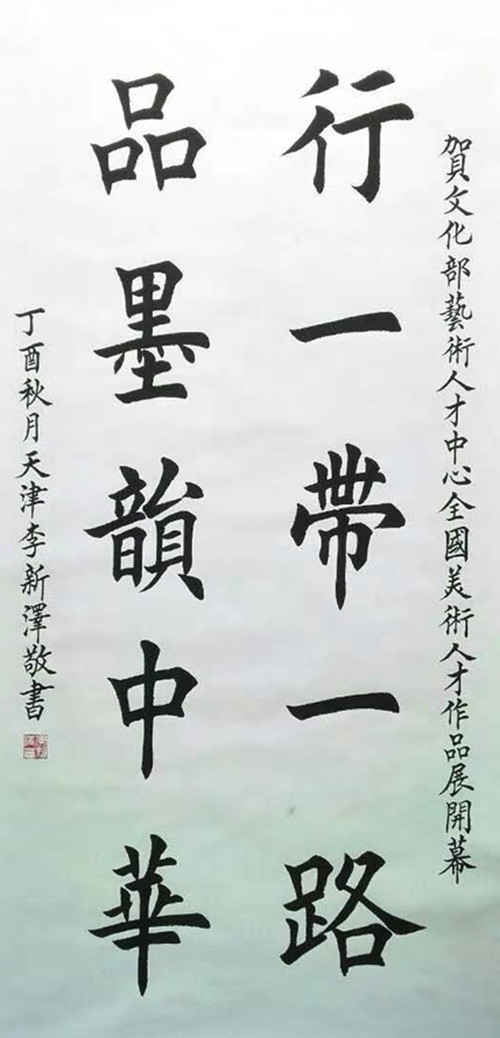 賀文化部藝術人才中心全國美術人才作品展開幕
行一帶一路
品墨韻中華
丁酉秋月天津李新澤敬書